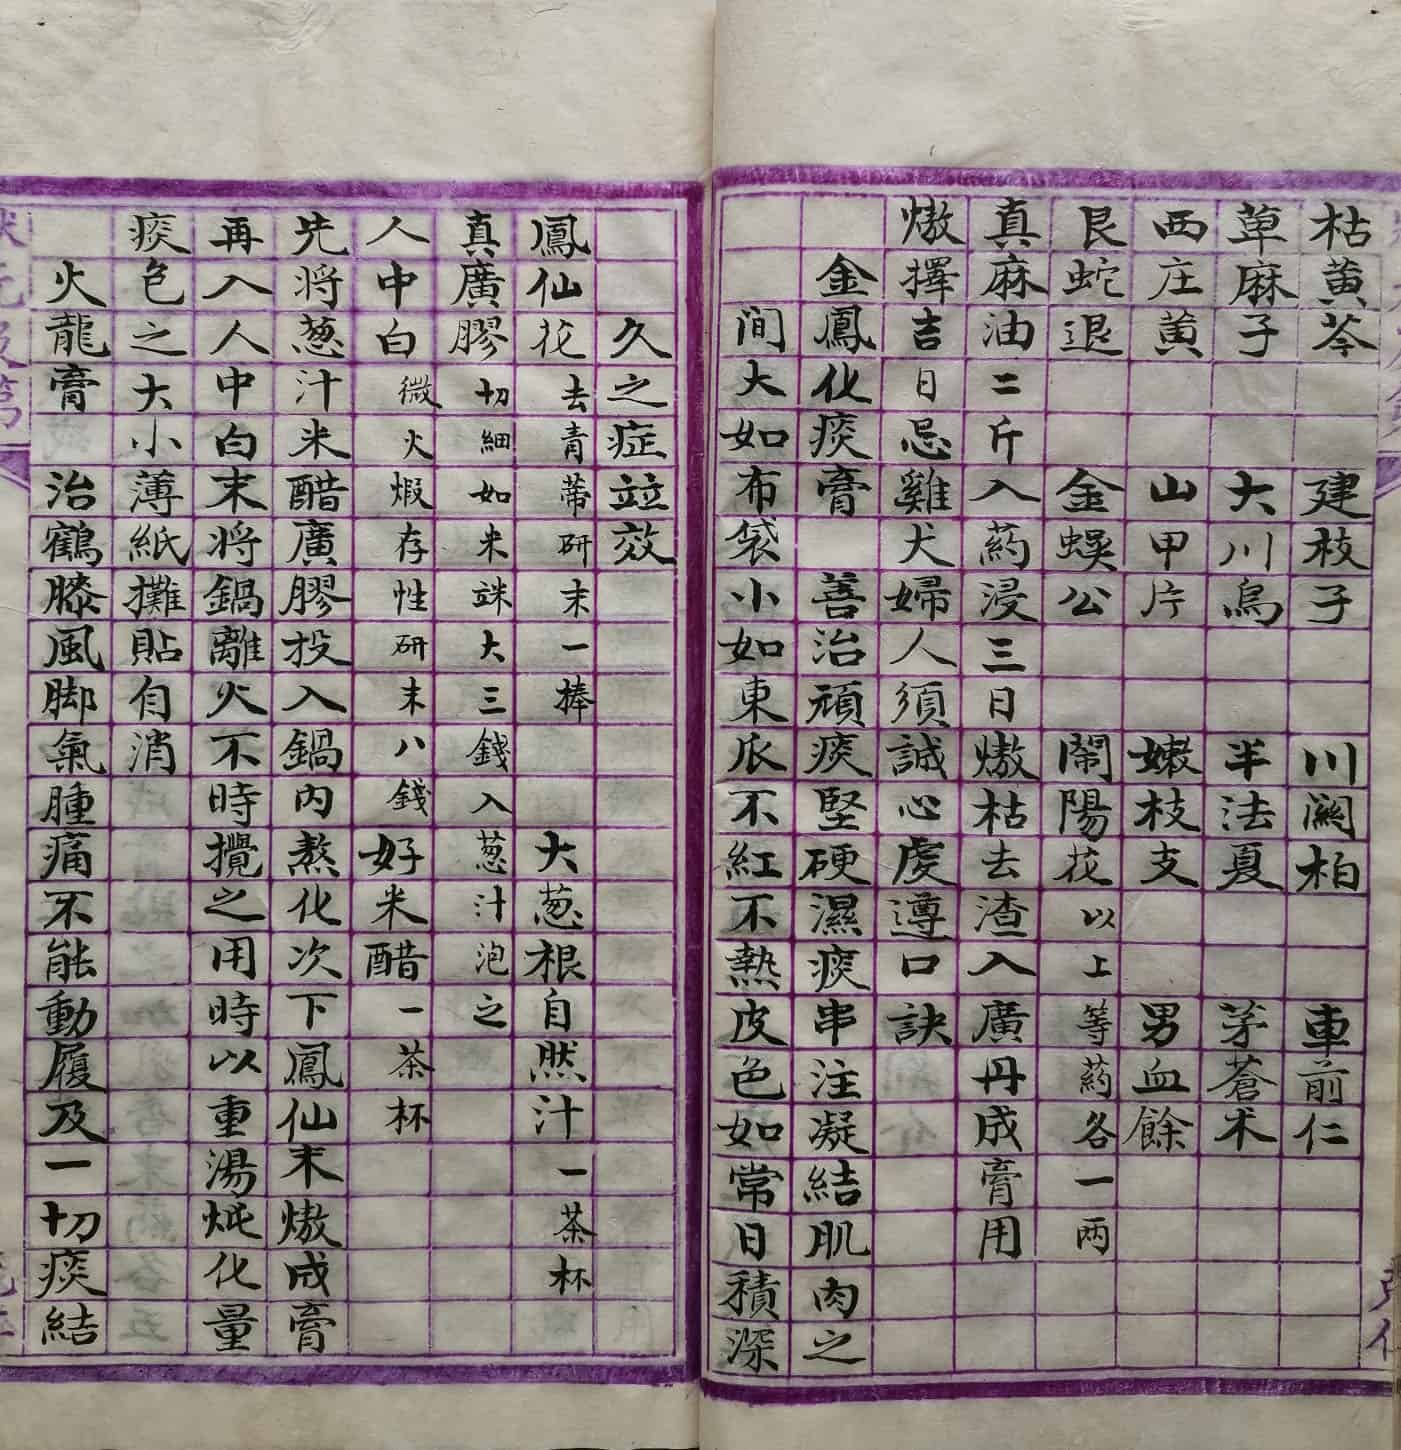 枯黄芩 建枝子 川闕柏 車前仁
草麻子 大川烏 半法夏 茅蒼术
西庄黄 山甲片 嫩枝支 男血餘
艮蛇退 金蜈公 鬧陽花 以上等葯各一两
真麻油二斤入葯浸三日熬枯去渣入廣丹成膏用
熬擇吉日忌雞犬婦人須誠心虔遵口訣
金鳳化痰膏 善治頑痰堅硬濕痰串注凝結肌肉之
間大如布袋小如東瓜不紅不熱皮色如常日積深
久之症竝效
鳳仙花去青蒂研末一捧 大葱根自然汁一茶杯
真廣膠切細如米誅大三錢入葱汁泡之
人中白微火煅存性研末八錢 好米醋一茶杯
先将葱汁米醋廣膠投入鍋內熬化次下鳳仙末熬成膏
再入人中白末将鍋離火不時攪之用時以重湯炖化量
痰色之大小薄紙攤貼自消
火龍膏 治鶴膝風脚氣腫痛不能動履及一切痰結